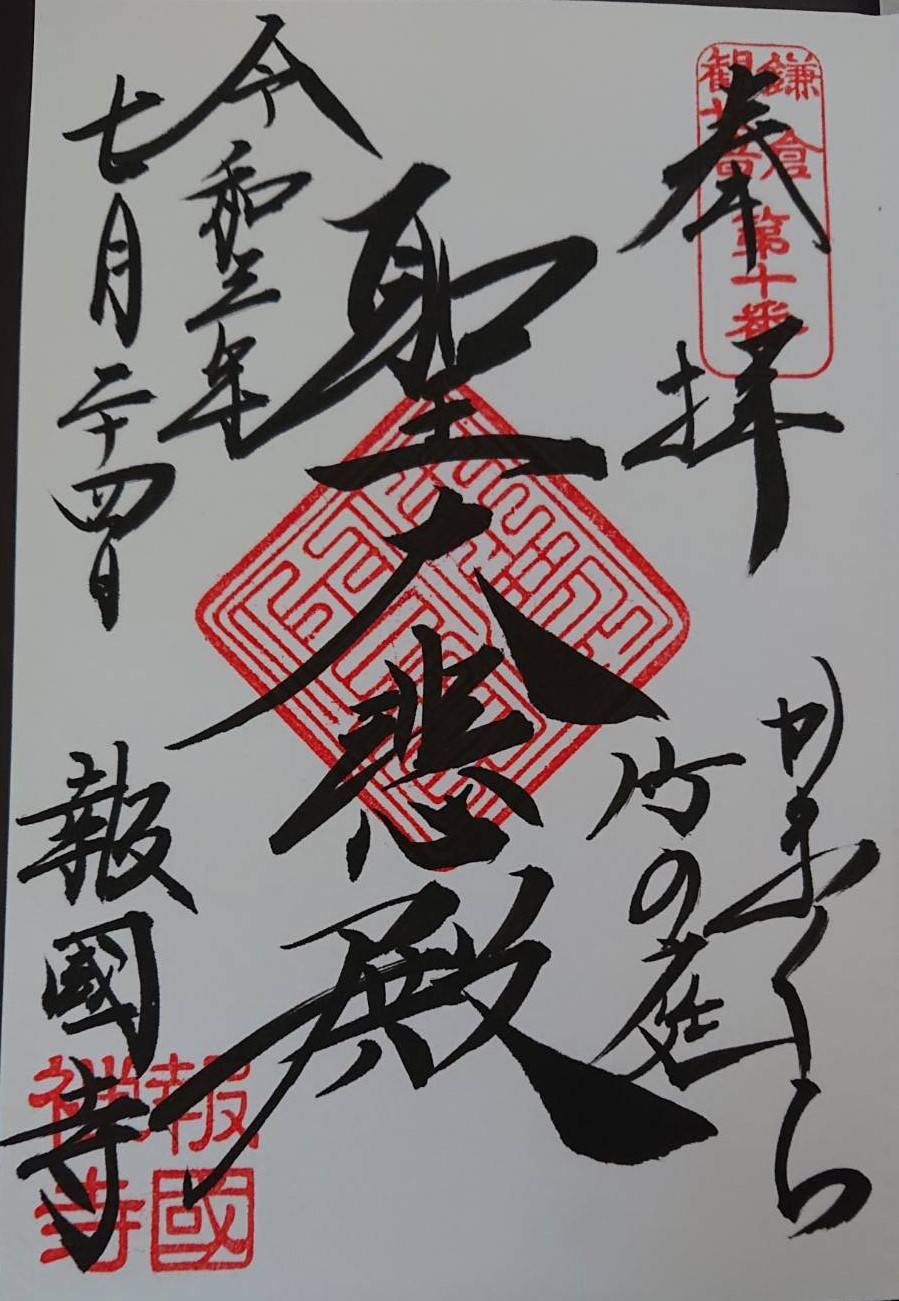 奉拝
鎌倉
観音
第十番
かまくら
竹の庭
聖大悲殿
令和三年
七月二十四日
報國寺
報國
禅寺